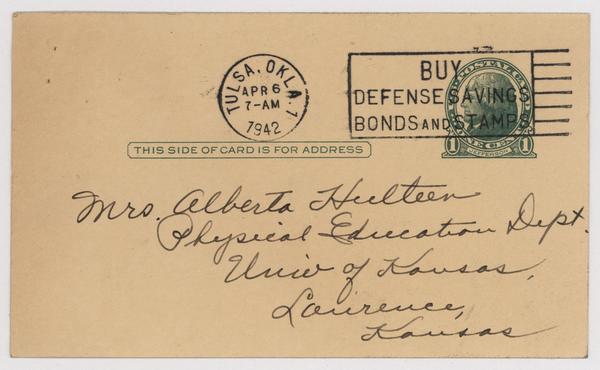 TULSA, OKLA. 1
APR 6
7-AM
1942
BUY
DEFENSE SAVINGS
BONDS AND STAMPS
1 JEFFERSON 1
THIS SIDE OF CARD IS FOR ADDRESS
Mrs. Alberta Hulteen
Physical Education Dept.
Univ of Kansas,
Lawrence,
Kansas